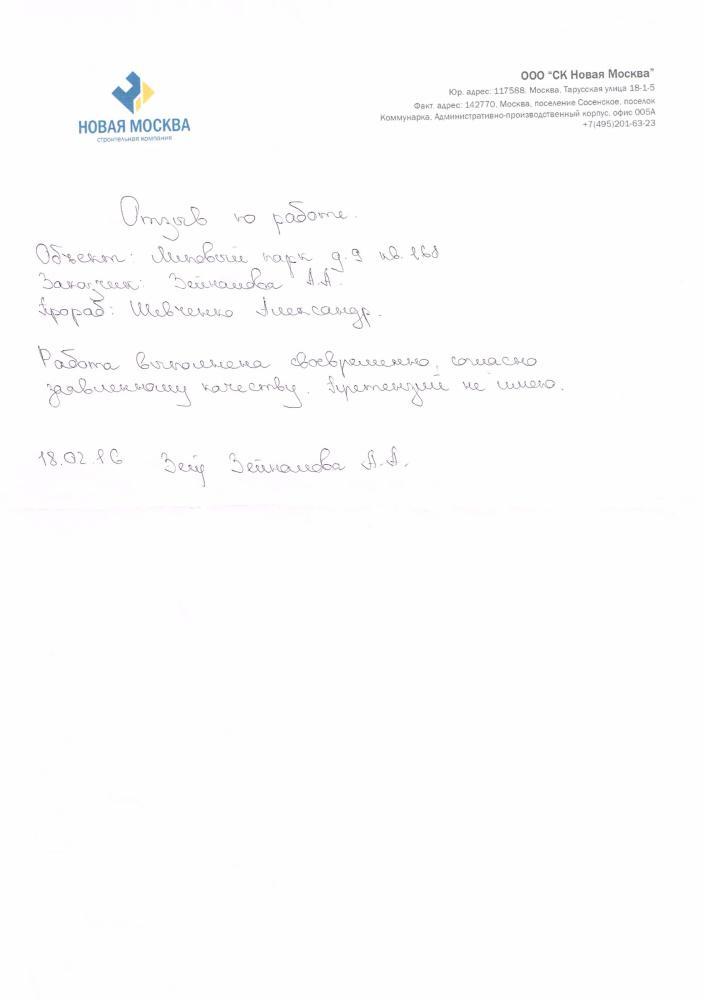 НОВАЯ МОСКВА
строительная компания
ООО "СК Новая Москва"
Юр. адрес: 117588, Москва, Тарусская улица 18-1-5
Факт. адрес: 142770, Москва, поселение Сосенское, поселок
Коммунарка, Административно-производственный корпус, офис 005А
+7(495)201-63-23
Отзыв по работе.
Объект: Липовый парк д. 9 кв. 168
Заказчик: Зейналова А.А.
Прораб: Шевченко Александр.
Работа выполнена своевременно, согласно
заявленному качеству. Претензий не имею.
18.02.16 Зейналова А.А.